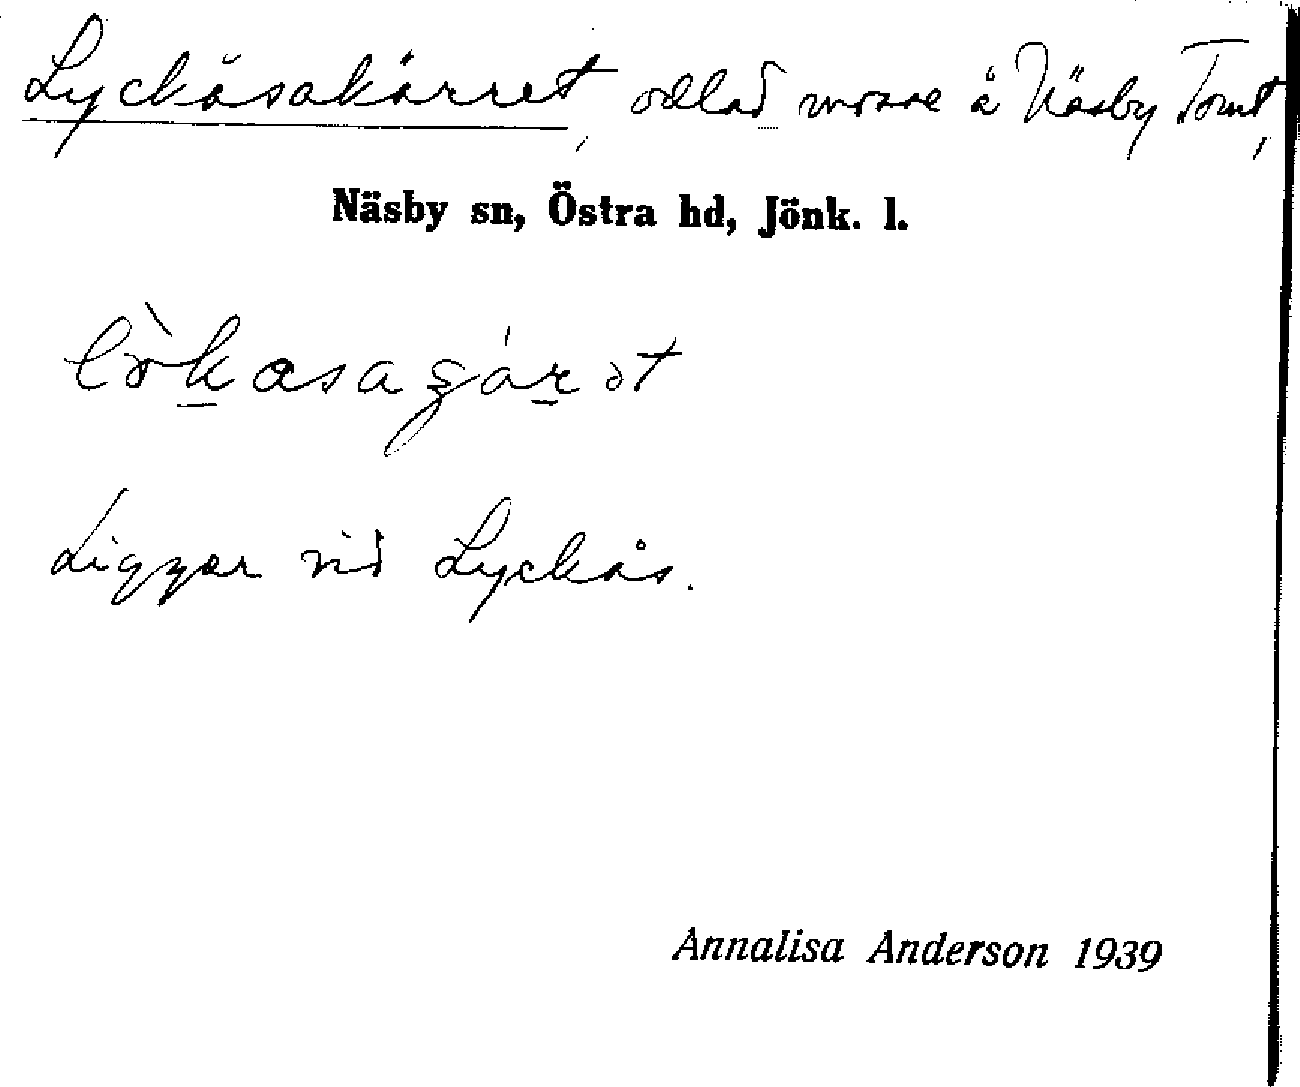 Lyckåsakärret, odlad mosse å Näsby Tomt,
Näsby sn, Östra hd, Jönk. l.
Ligger vid Lyckås.
Annalisa Anderson 1939